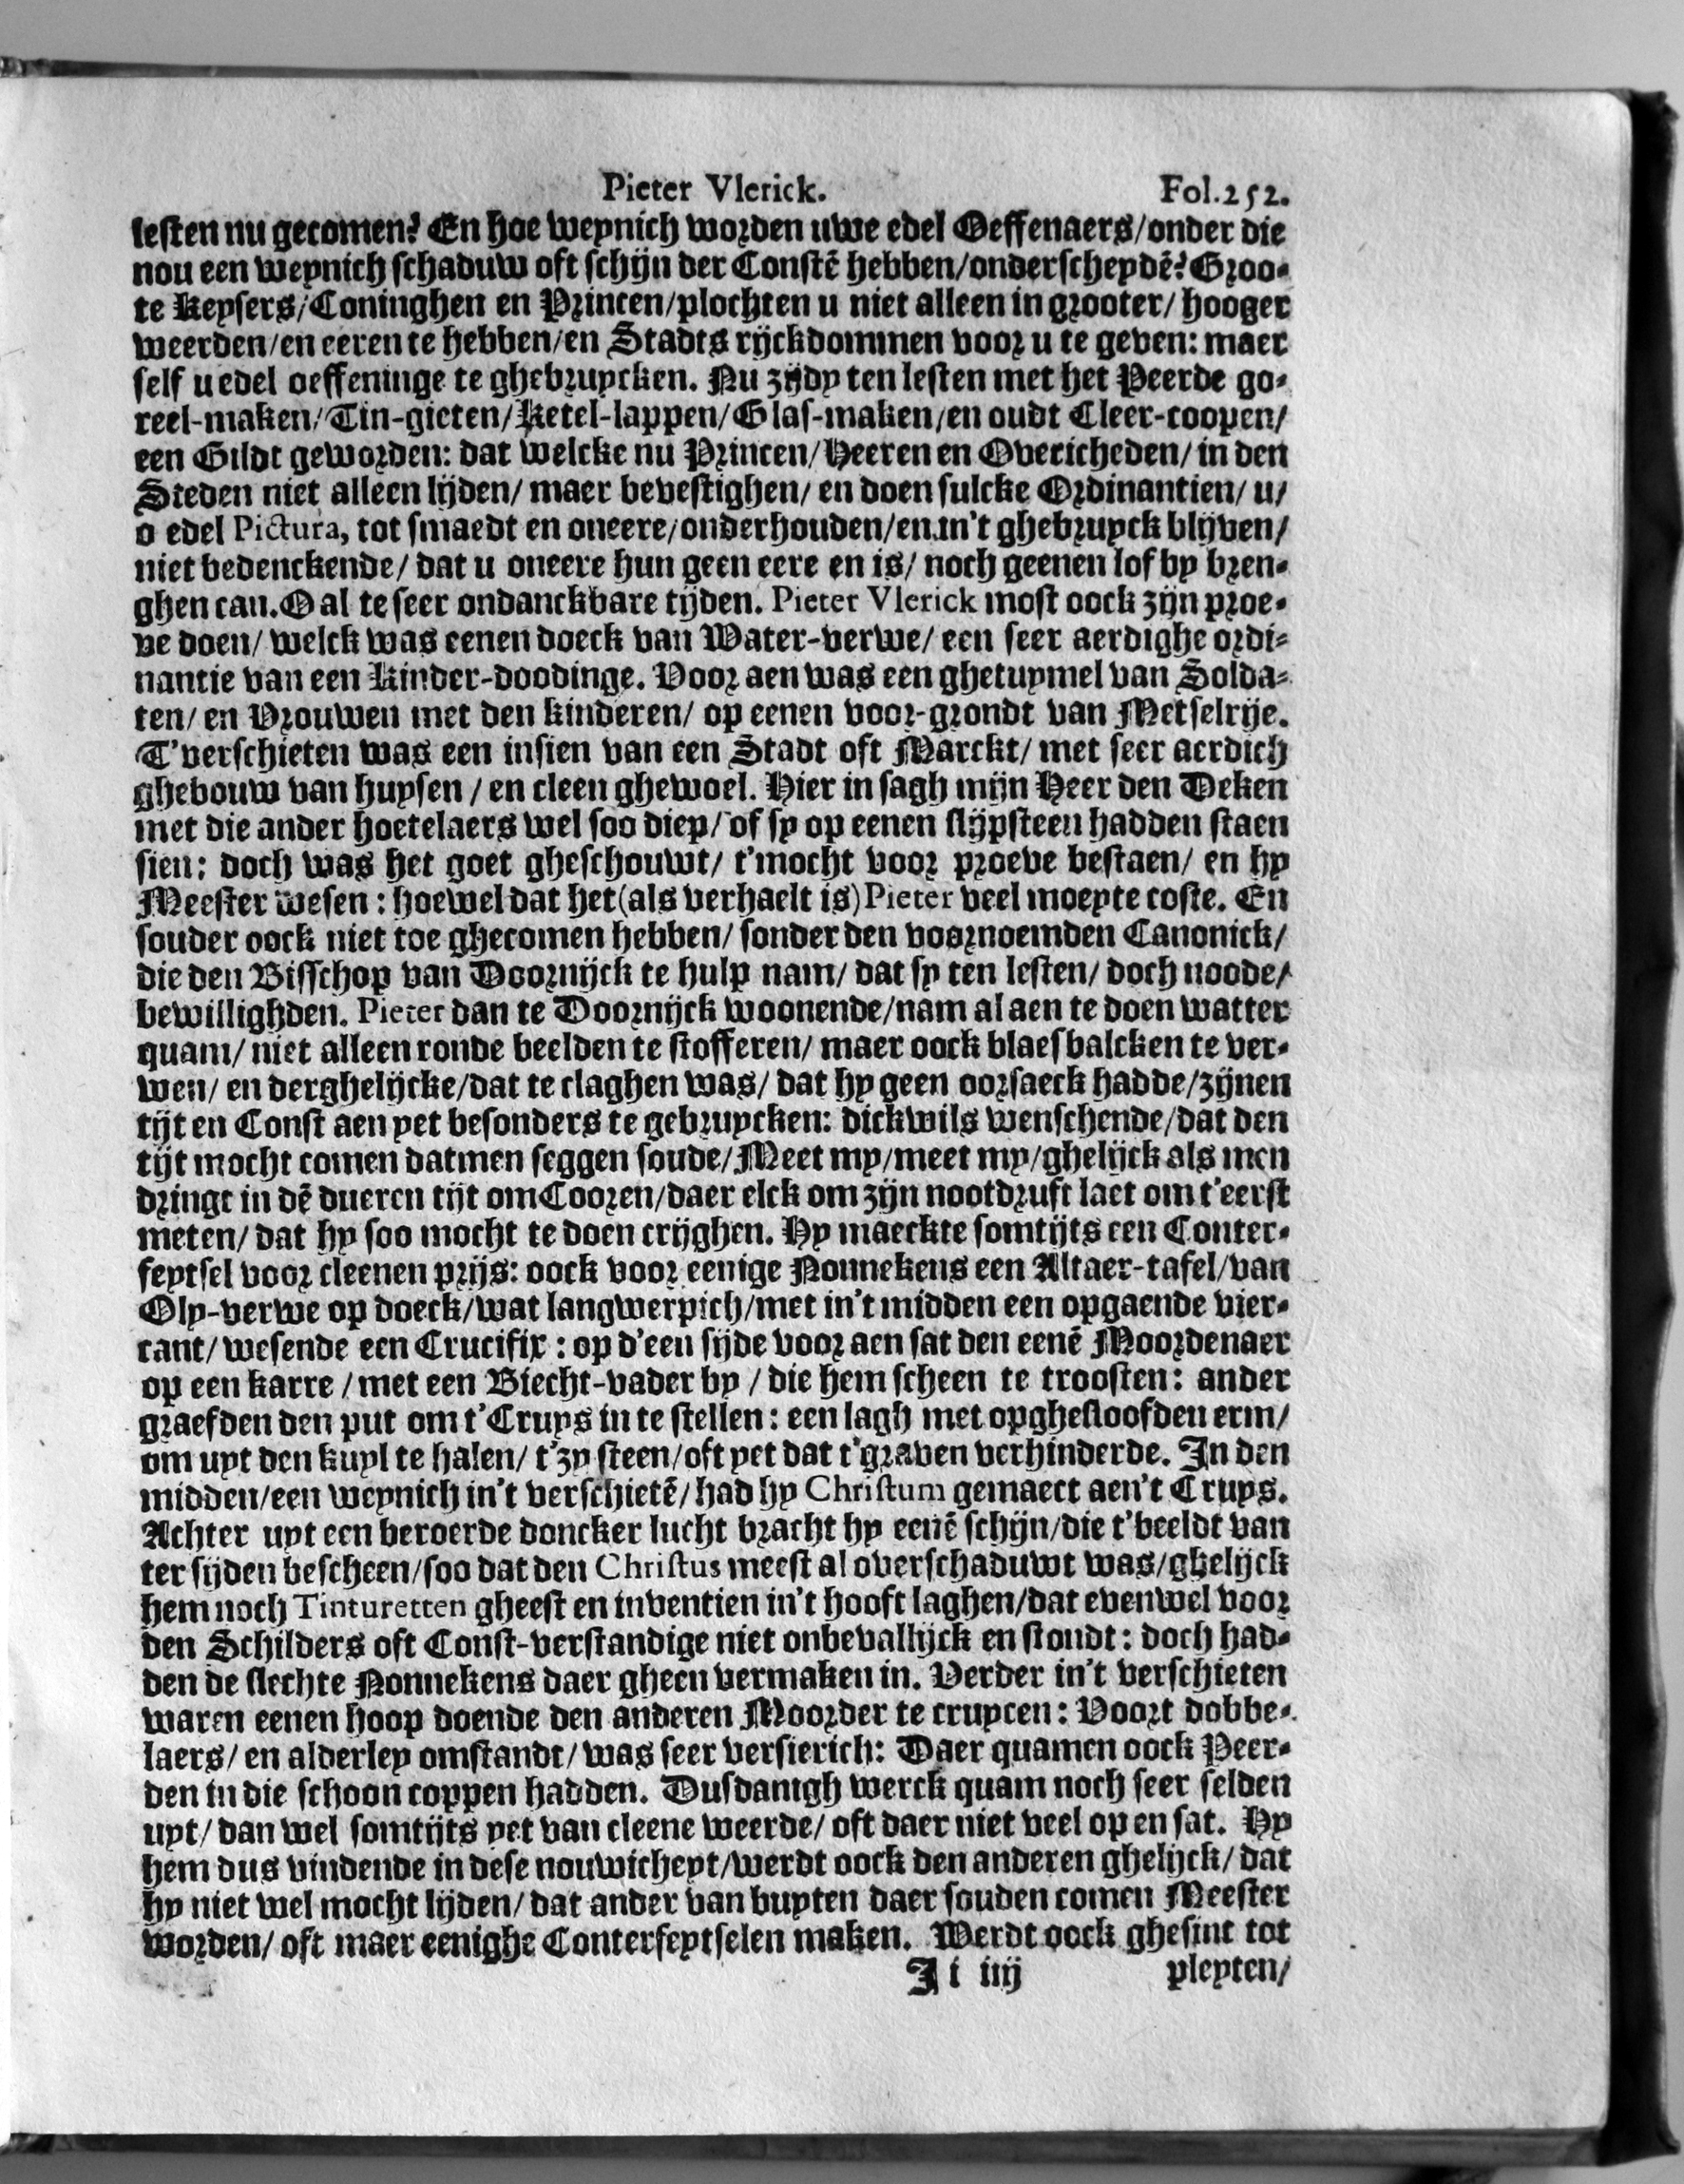 Pieter Vlerick. Fol.252.
lesten nu gecomen? En hoe weynich worden uwe edel Oeffenaers/onder die
nou een weynich schaduw oft schijn der Constē hebben/onderscheydē? Groo-
te Keysers/Coninghen en Princen/plochten u niet alleen in grooter/ hooger
weerden/en eeren te hebben/en Stadts rijckdommen voor u te geven: maer
self u edel oeffeninge te ghebruycken. Nu zijdy ten lesten met het Peerde go-
reel-maken/Tin-gieten/Ketel-lappen/Glas-maken/en oudt Cleer-coopen/
een Gildt geworden: dat welcke nu Princen/Heeren en Overicheden/ in den
Steden niet alleen lijden/ maer bevestighen/ en doen sulcke Ordinantien/ u/
o edel Pictura, tot smaedt en oneere/onderhouden/en in't ghebruyck blijven/
niet bedenckende/ dat u oneere hun geen eere en is/ noch geenen lof by bren-
ghen can. O al te seer ondanckbare tijden. Pieter Vlerick most oock zijn proe-
ve doen/ welck was eenen doeck van Water-verwe/ een seer aerdighe ordi-
nantie van een Kinder-doodinge. Voor aen was een ghetuymel van Solda-
ten/ en Vrouwen met den kinderen/ op eenen voor-grondt van Metselrije.
T'verschieten was een insien van een Stadt oft Marckt/ met seer aerdich
ghebouw van huysen / en cleen ghewoel. Hier in sagh mijn Heer den Deken
met die ander hoetelaers wel soo diep/ of sy op eenen slijpsteen hadden staen
sien: doch was het goet gheschouwt/ t'mocht voor proeve bestaen/ en hy
Meester wesen : hoewel dat het (als verhaelt is) Pieter veel moeyte coste. En
souder oock niet toe ghecomen hebben/ sonder den voornoemden Canonick/
die den Bisschop van Doornijck te hulp nam/ dat sy ten lesten/ doch noode/
bewillighden. Pieter dan te Doornijck woonende/nam al aen te doen watter
quam/ niet alleen ronde beelden te stofferen/ maer oock blaesbalcken te ver-
wen/ en derghelijcke/dat te claghen was/ dat hy geen oorsaeck hadde/zijnen
tijt en Const aen yet besonders te gebruycken: dickwils wenschende/dat den
tijt mocht comen datmen seggen soude/Meet my/meet my/ghelijck als men
dringt in dē dueren tijt om Cooren/daer elck om zijn nootdruft laet om t'eerst
meten/ dat hy soo mocht te doen crijghen. Hy maeckte somtijts een Conter-
feytsel voor cleenen prijs: oock voor eenige Nonnekens een Altaer-tafel/van
Oly-verwe op doeck/wat langwerpich/met in't midden een opgaende vier-
cant/ wesende een Crucifix : op d'een sijde voor aen sat den eenē Moordenaer
op een karre / met een Biecht-vader by / die hem scheen te troosten: ander
graefden den put om t'Cruys in te stellen : een lagh met opghesloofden erm/
om uyt den kuyl te halen/ t'zy steen/oft yet dat t'graven verhinderde. In den
midden/een weynich in't verschietē/ had hy Christum gemaect aen't Cruys.
Achter uyt een beroerde doncker lucht bracht hy eenē schijn/die t'beeldt van
ter sijden bescheen/soo dat den Christus meest al overschaduwt was/ghelijck
hem noch Tinturetten gheest en inventien in't hooft laghen/dat evenwel voor
den Schilders oft Const-verstandige niet onbevallijck en stondt: doch had-
den de slechte Nonnekens daer gheen vermaken in. Verder in't verschieten
waren eenen hoop doende den anderen Moorder te cruycen: Voort dobbe-
laers/ en alderley omstandt/ was seer versierich: Daer quamen oock Peer-
den in die schoon coppen hadden. Dusdanigh werck quam noch seer selden
uyt/ dan wel somtijts yet van cleene weerde/ oft daer niet veel op en sat. Hy
hem dus vindende in dese nouwicheyt/werdt oock den anderen ghelijck/ dat
hy niet wel mocht lijden/ dat ander van buyten daer souden comen Meester
worden/ oft maer eenighe Conterfeytselen maken. Werdt oock ghesint tot
Ii iiij pleyten/